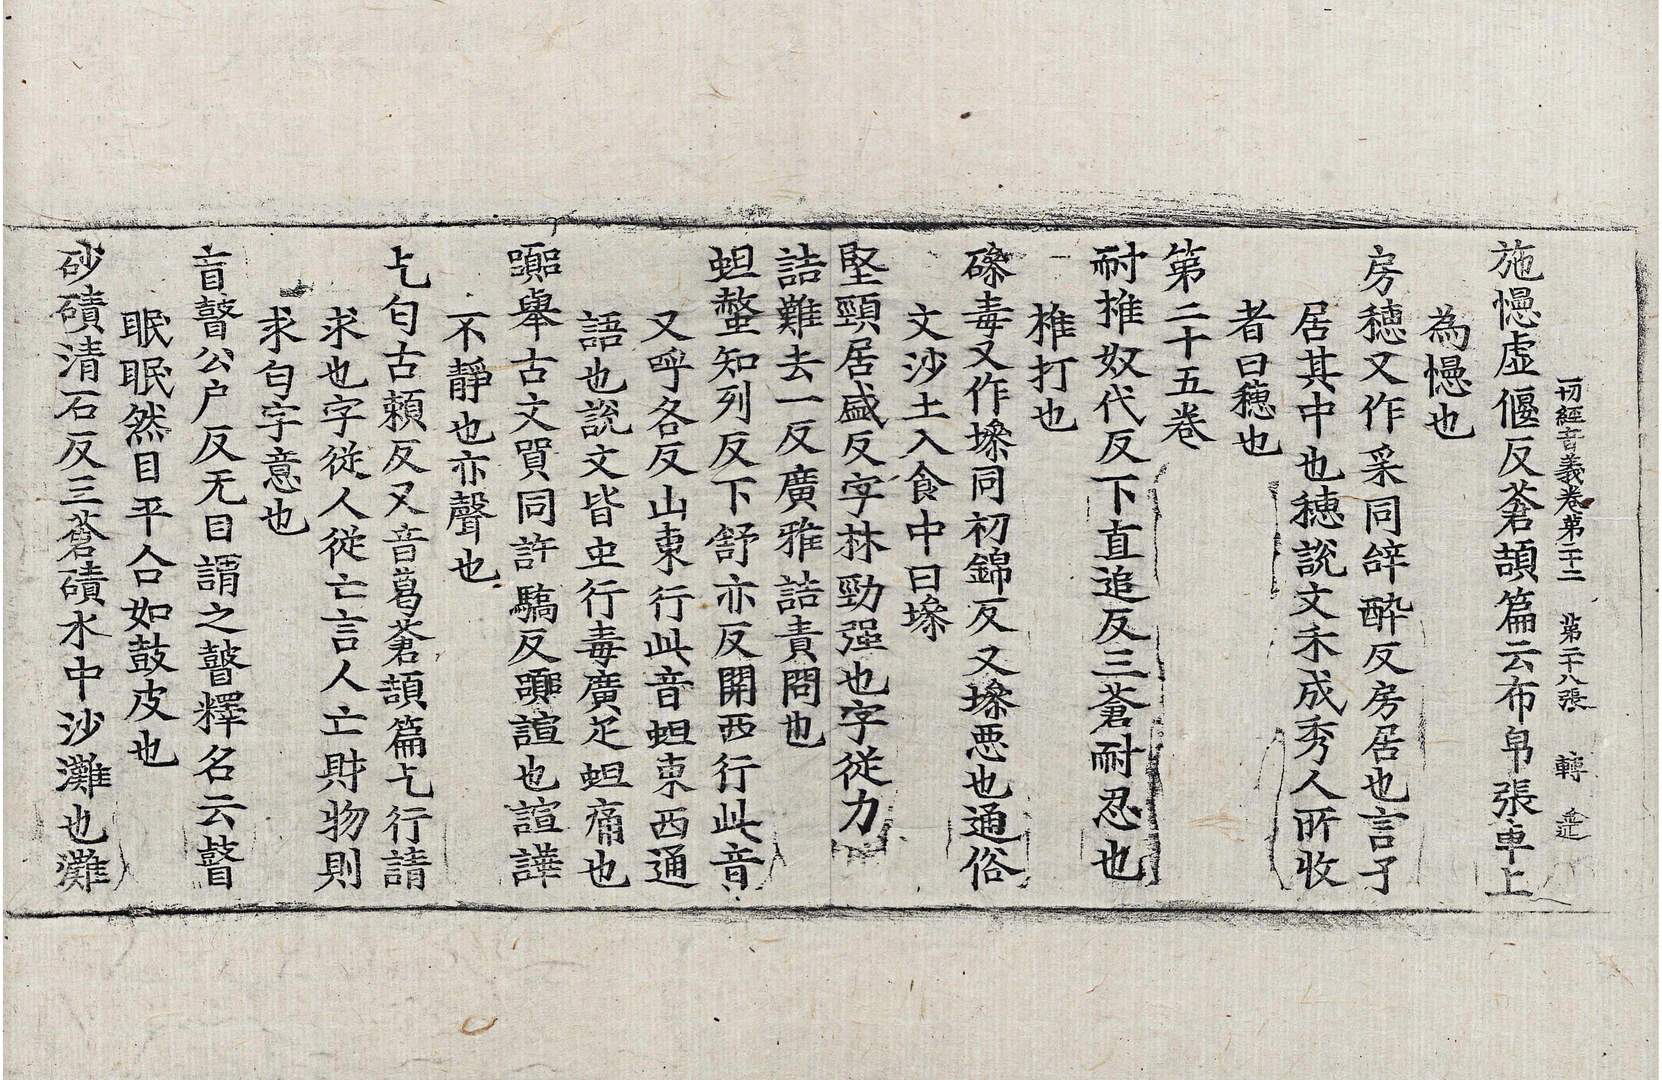 初經音義卷第二十二　第二十八張　轉　
施幰虛偃反蒼頡篇云布帛張車上
為幰也
房穗又作采同辝醉反房居也言子
居其中也穗說文禾成秀人所收
者曰穗也
第二十五卷
耐推奴代反下直追反三蒼耐忍也
椎打也
磣毒又作墋同初錦反又墋惡也通俗
文沙土入食中曰墋
堅頸居盛反字林勁强也字從力
詰難去一反廣雅詰責問也
蛆螫知列反下舒亦反開西行此音
又呼各反山東行此音蛆東西通
語也說文皆虫行毒廣疋蛆痛也
嚻舉古文貿同許驕反嚻諠也諠譁
不靜也亦聲也
乞匄古賴反又音葛蒼頡篇乞行請
求也字從人從亡言人亡財物則
求匄字意也
盲瞽公户反无目謂之瞽釋名云瞽
眠眠然目平合如鼓皮也
砂磧清石反三蒼磧水中沙灘也灘